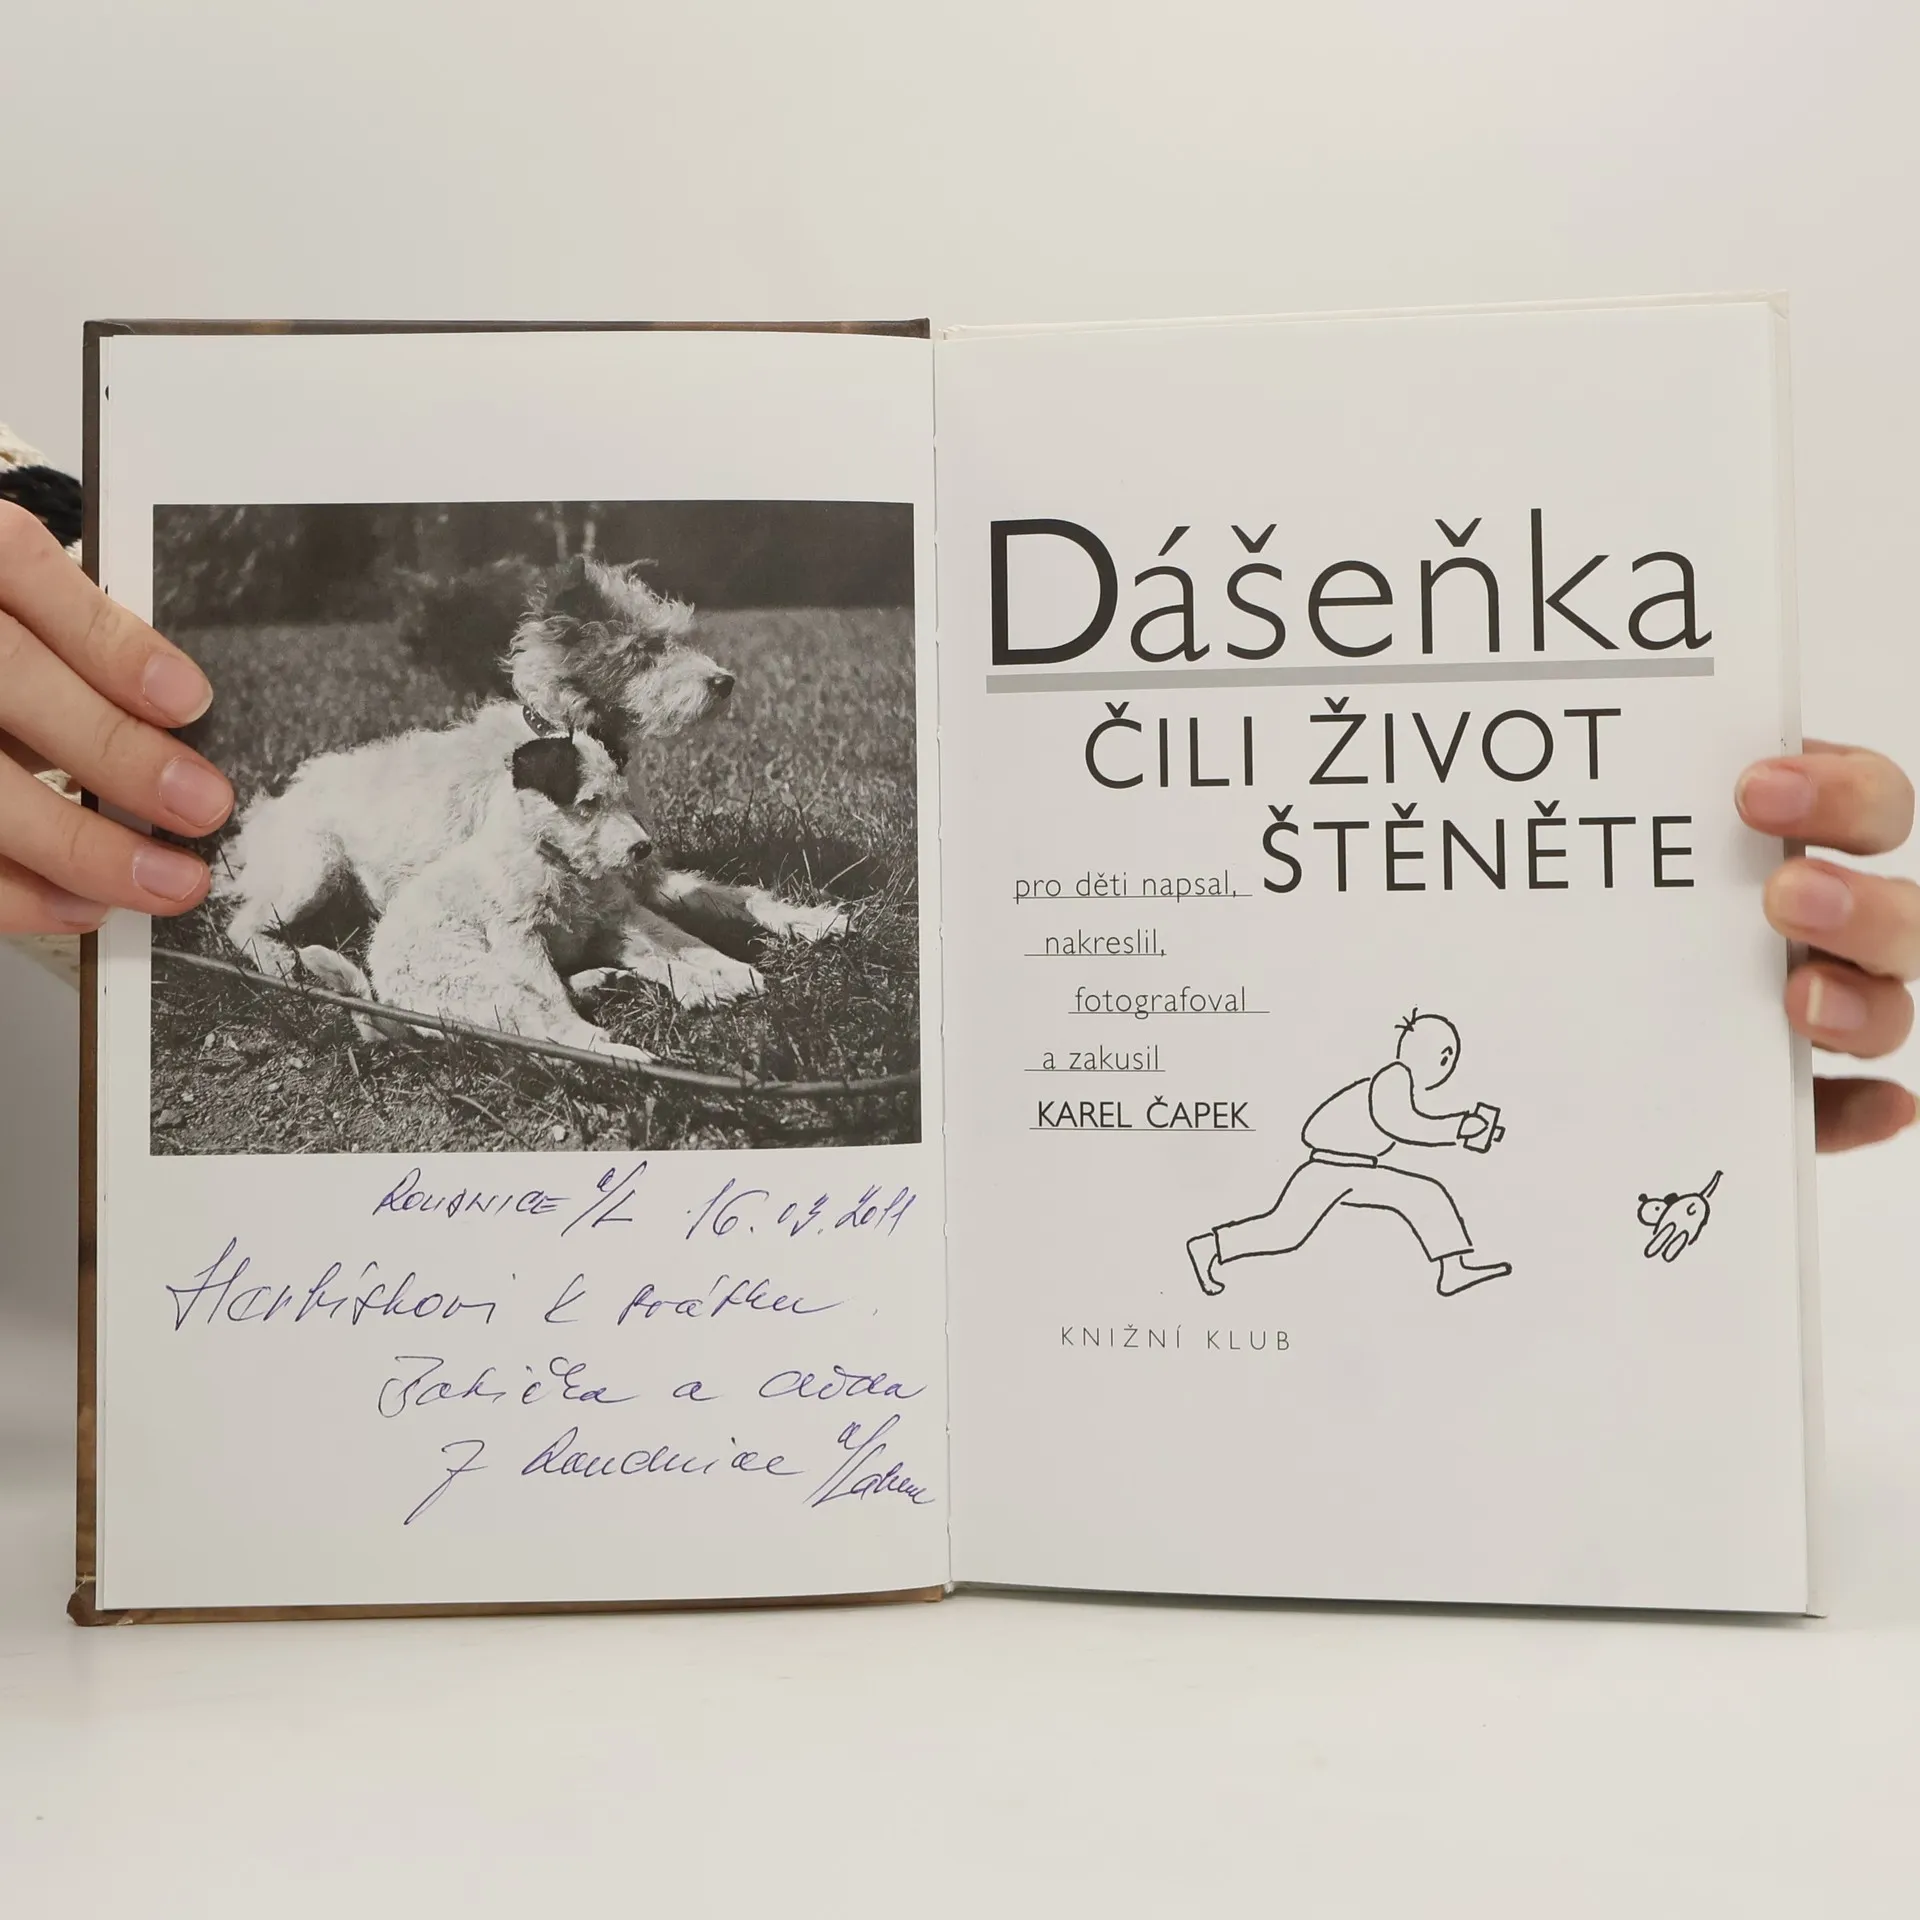 ROUDNICE n/L 16.03.2011
k svátku.
a
z Roudnice n/Labem
Dášeňka
ČILI ŽIVOT
ŠTĚNĚTE
pro děti napsal,
nakreslil,
fotografoval
a zakusil
KAREL ČAPEK
KNIŽNÍ KLUB